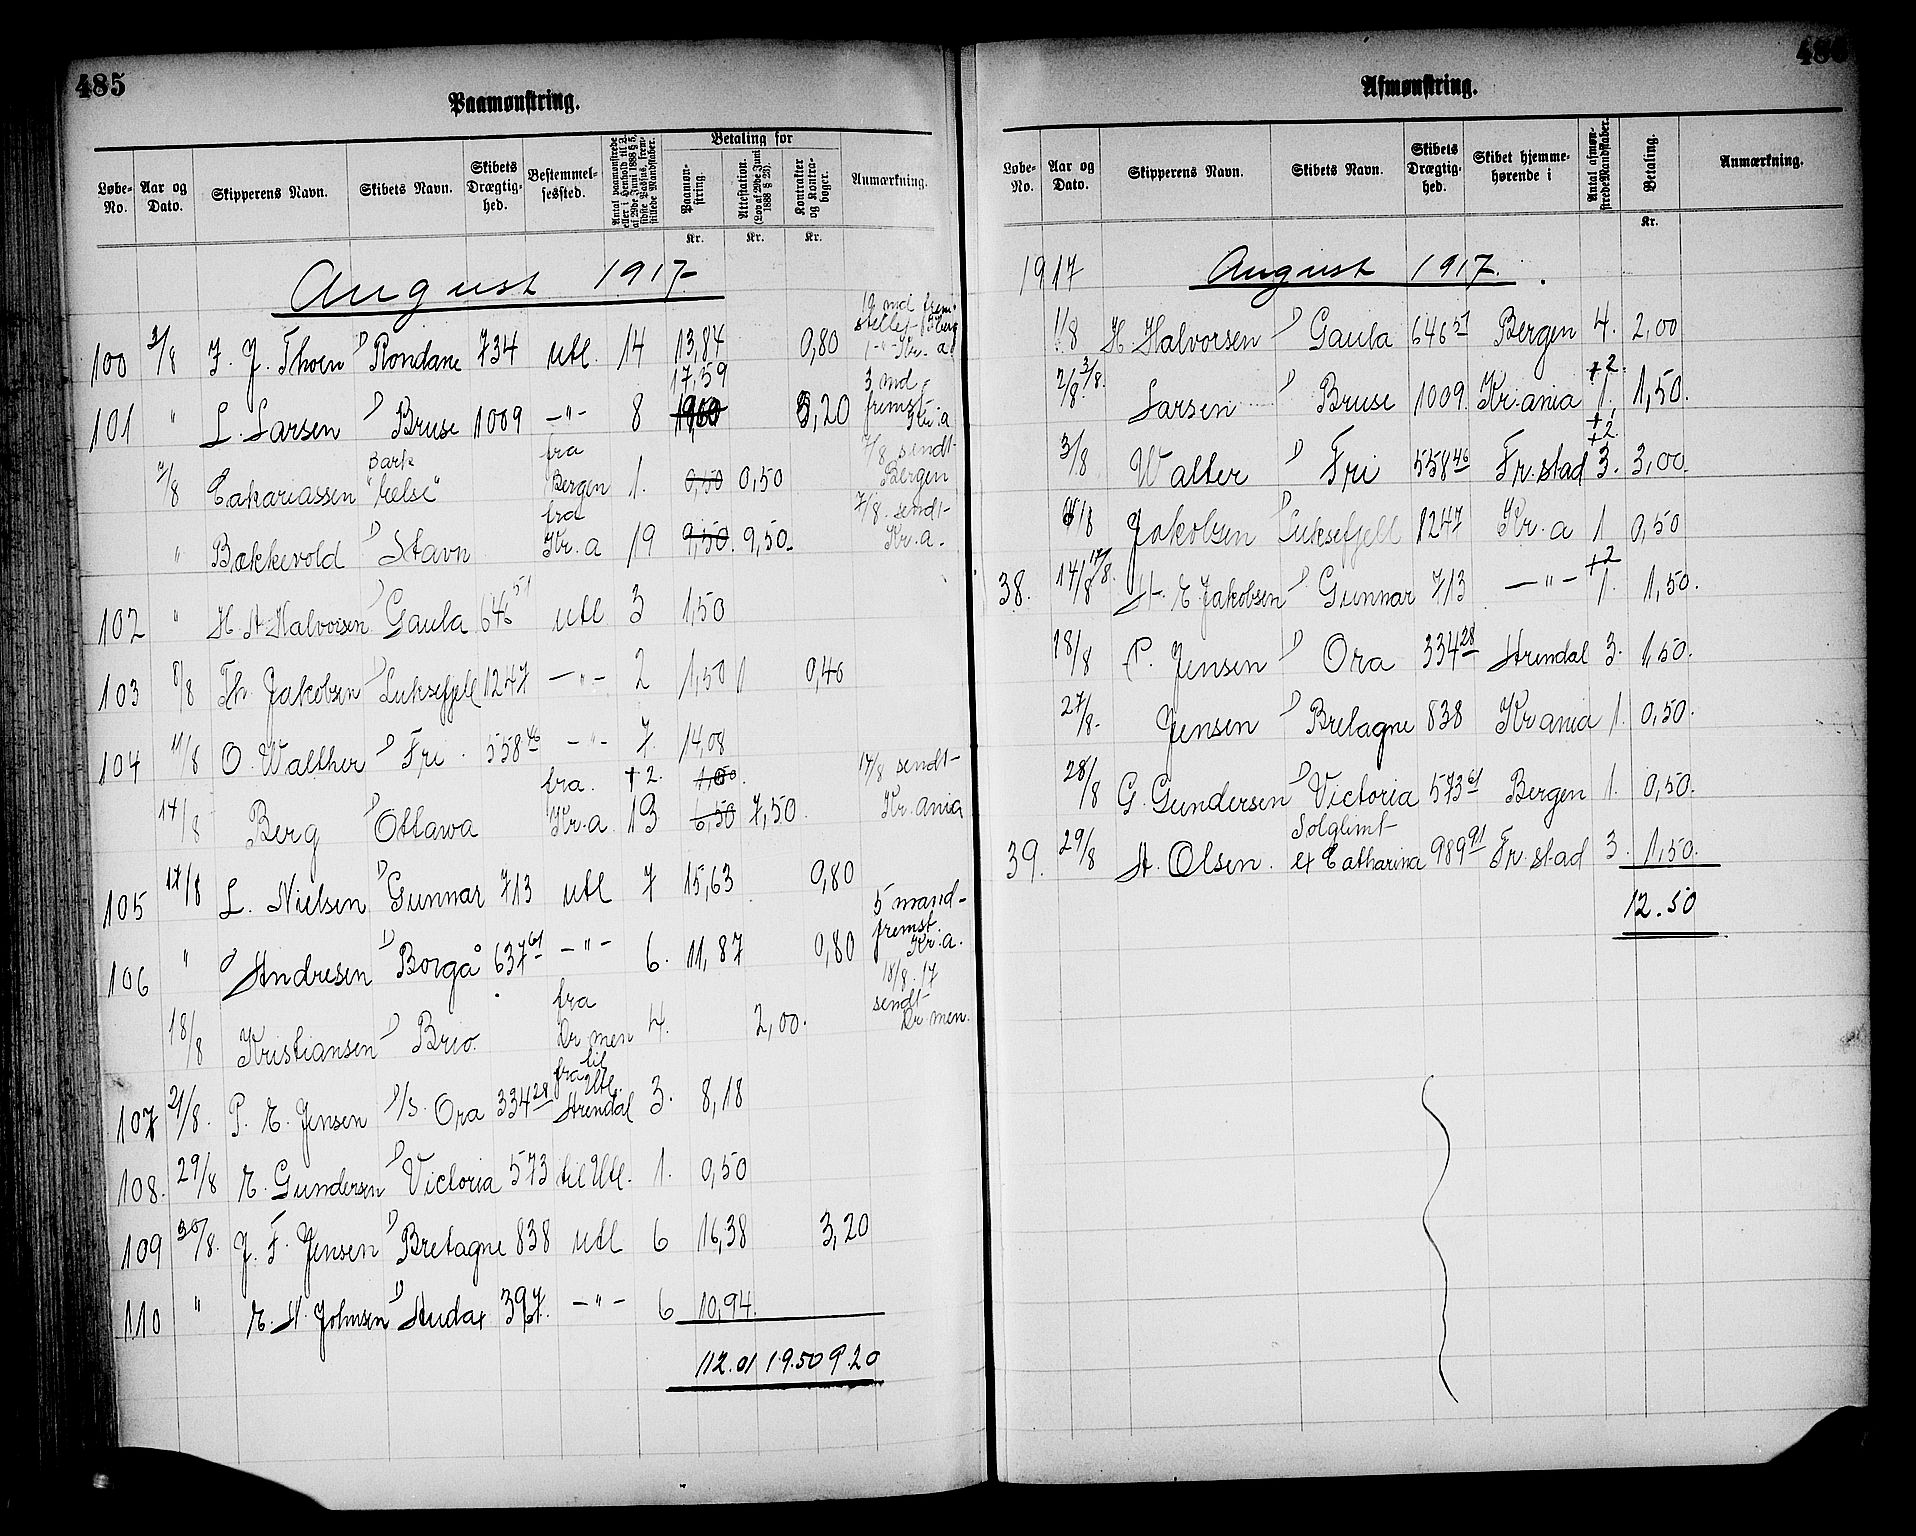 485
Paamønstring.
Løbe-No. Aar og Dato. Skipperens Navn. Skibets Navn. Skibets Drægtighed. Bestemmelsessted. Betaling for Paamønstring. Attestation. (Lov af 29de Juni 1888 § 23). Kontrakter og Kontrabøger. Anmærkning.
Kr. Kr. Kr.
August 1917
100 3/8 F. J. Thoen D Rondane 734 utl. 14 13,84 0,80
101 " L. Larsen D Bruse 1009 -"- 8 17,59 5,20 3 md fremst- Kr.a
7/8 Cakariassen Bark "Celse" fra Bergen 1. 0,50 0,50 7/8 sendt Bergen
" Bækkevold D Stavn fra Kr.a 19 9,50. 9,50. 7/8. sendt- Kr.a.
102 " H. A. Halvorsen D Gaula 646 51 utl 3 1,50
103 8/8 Th. Jakobsen D Luksefjell 1247 -"- 2 1,50 0,40
104 11/8 O. Walther D Fri. 558 46 -"- 7 14,08
14/8 Berg D Ottawa fra. Kr.a +2. 13 1,00. 6,50 7,50. 17/8 sendt- Kr.ania
105 17/8 L. Nielsen D Gunnar 713 utl 7 15,63 0,80
106 " O Andresen D Borgå 637 61 -"- 6. 11,87 0,80 5 mand- fremst. Kr.a.
18/8 Kristiansen D Brio. fra Dr men 4. 2,00. 18/8.17 sendt Dr.men.
107 21/8. P. E. Jensen D/S. Ora 334 28 fra Arendal til Utl. 3. 8,18
108. 29/8 E. Gundersen D Victoria 573 til Utl. 1. 0,50
109 30/8. J. F. Jensen D Bretagne 838 utl 6 16,38 3,20
110 " E. A. Johnsen D Audax 397. -"- 6 10,94.
112.01 19.50 9.20
486
Afmønstring.
Løbe-No. Aar og Dato. Skipperens Navn. Skibets Navn. Skibets Drægtighed. Skibet hjemmehørende i Antal afmønstrede Mandskaber. Betaling. Anmærkning.
Kr.
1917 August 1917.
1/8 H Halvorsen D Gaula 646 51 Bergen 4. 2,00
2/8 3/8. Larsen D Bruse 1009. Kr.ania +2. 1. 1,50.
3/8 Walter D Fri 558 46 Fr.stad +2. 3. 3,00.
Jakobsen D Luksefjell 1247 Kr.a 1 0,50
38. 14/8 17/8. A. E. Jakobsen D. Gunnar 713 -"- +2 1. 1,50.
18/8 P. Jensen D Ora 334 28 Arendal 3. 1,50.
27/8. Jensen D Bretagne 838 Kr ania 1. 0,50.
28/8 G. Gundersen D Victoria 573 61 Bergen 1. 0,50.
39. 29/8 A. Olsen. Solglimt ex Catharina 989 91 Fr.stad 3. 1,50.
12.50